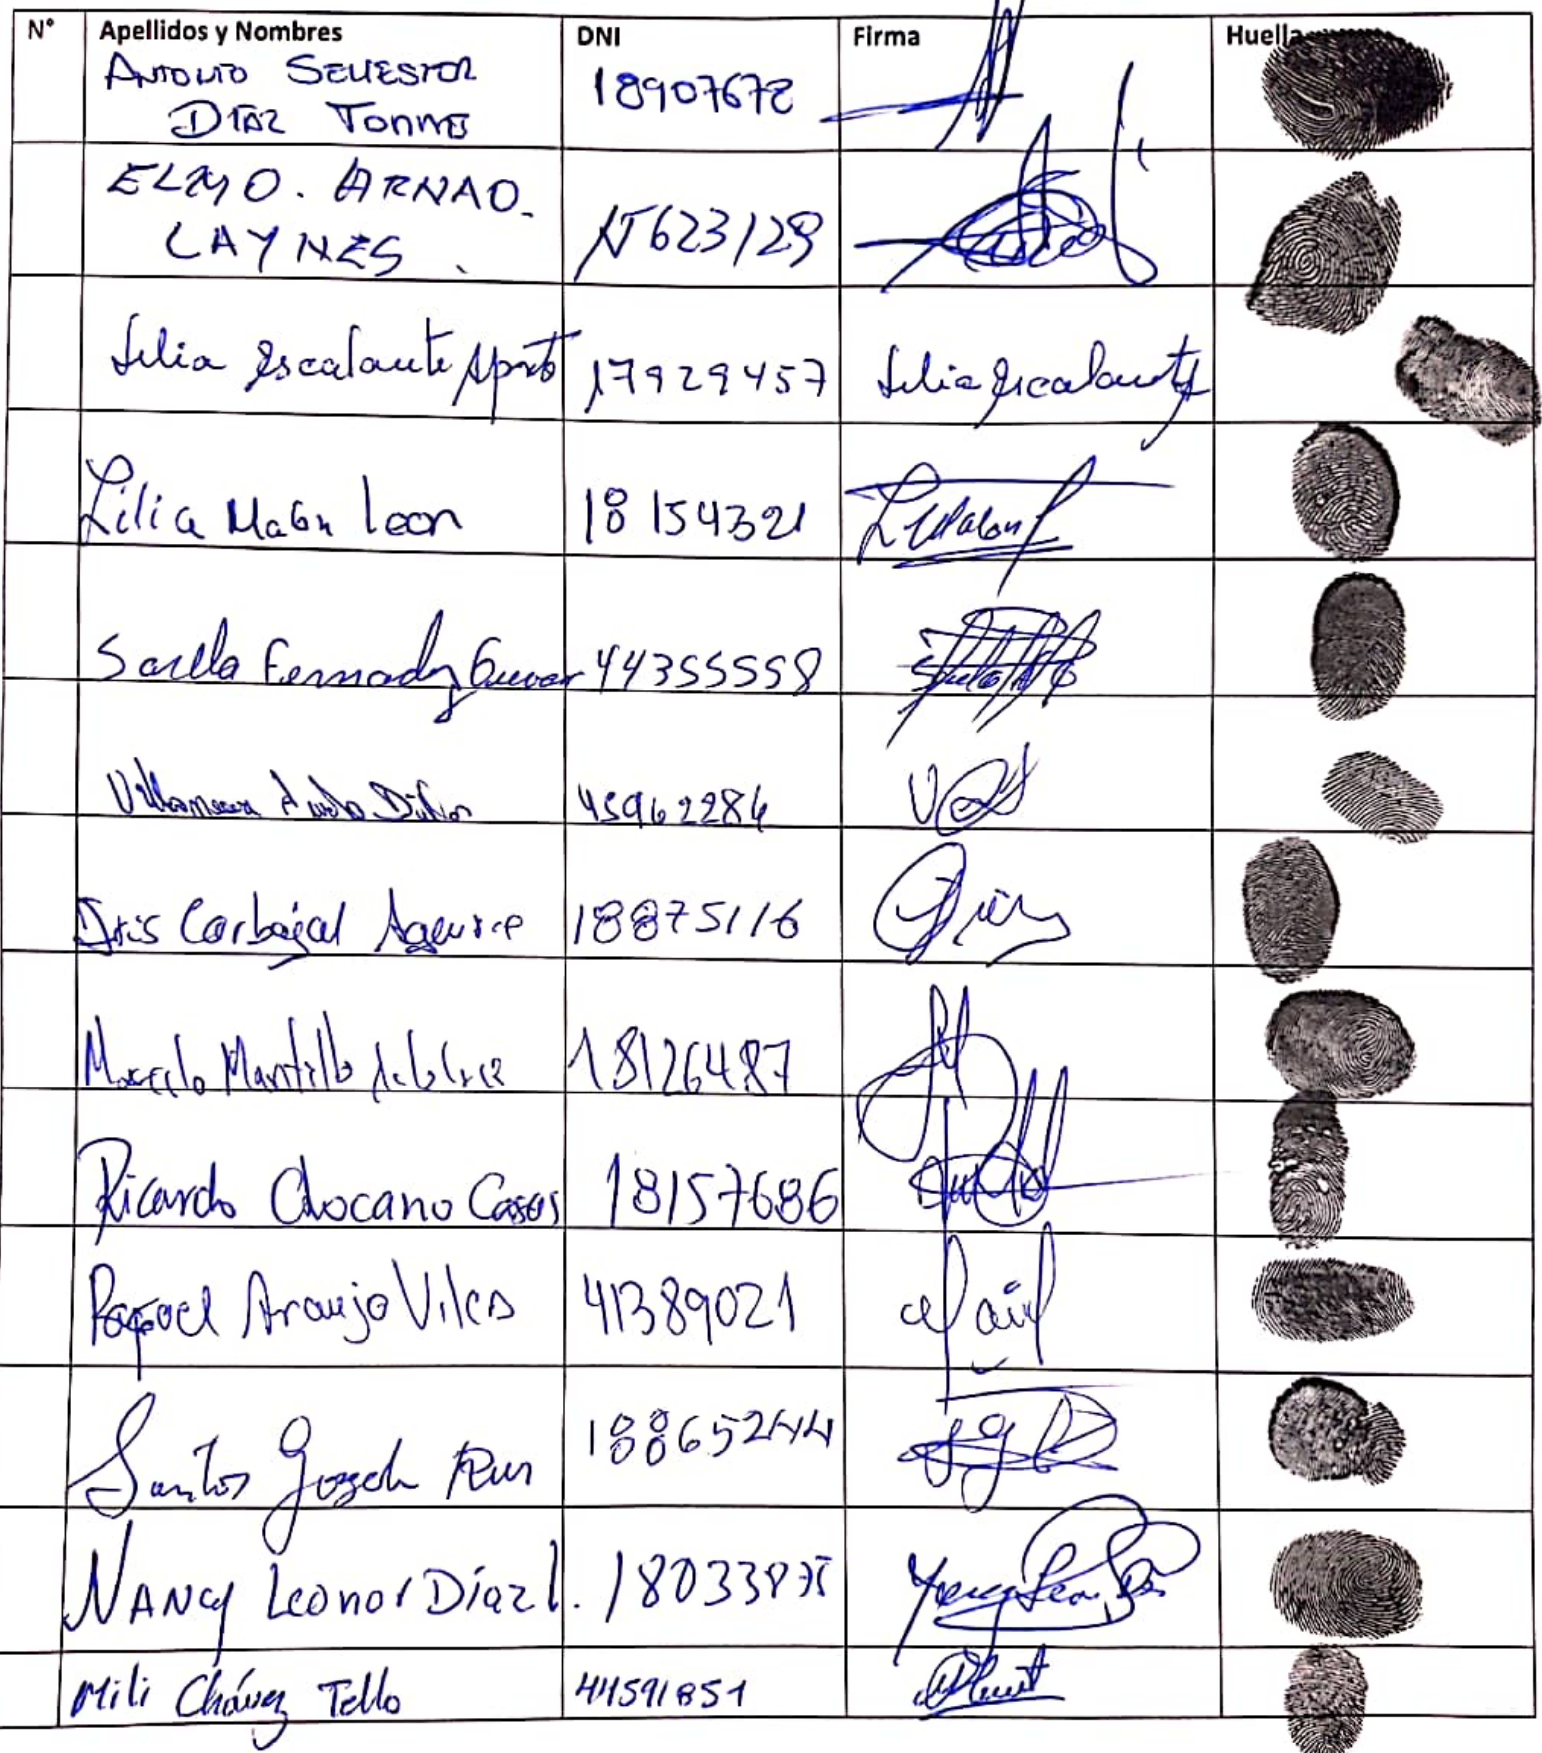 N° Apellidos y Nombres DNI Firma Huella
ANTONIO SILVESTOR 18907672
DIAZ TORRES
ELMO. ARNAO.
LAYNES. 17623129
Lilia Escalante 17929457 Lilia Escalante
Lilia Malón Leon 18154321
Sarella Fernandez Guevar 44355558
Villanueva 45962284
Iris Carbajal Aguirre 18875116
Marcelo Mantilla 18126487
Ricardo Chocano Casas 18157686
Rafael Araujo Vilca 41389021
Santos 18865244
NANCY Leonor Díaz L. 180338
Mili Chávez Tello 44591851